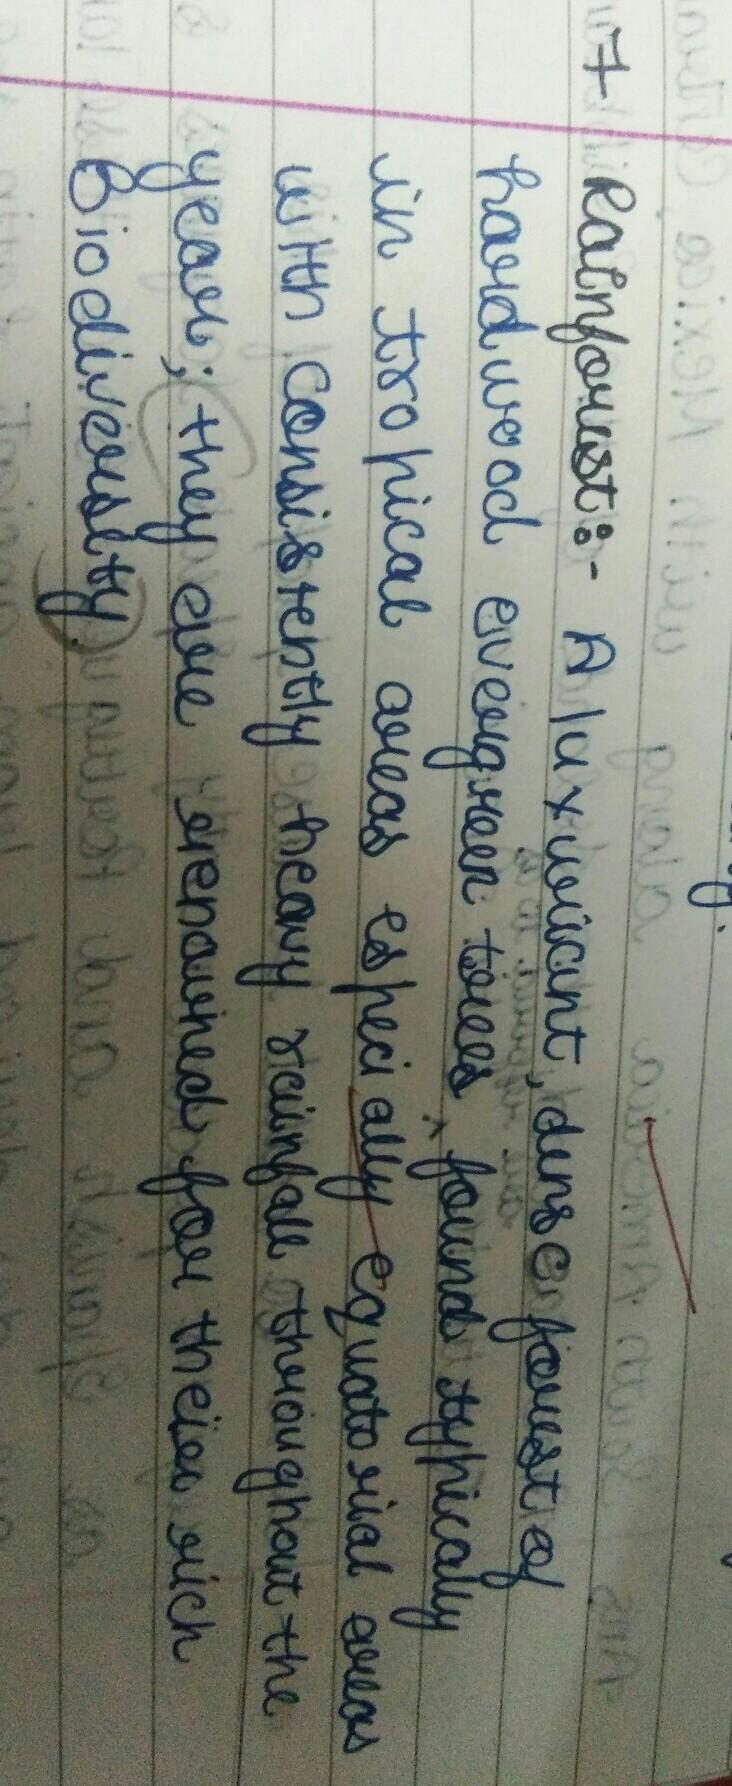 7 Rainforest:- A luxuriant, dense forest of
hardwood evergreen trees, found typically
in tropical areas especially equatorial areas
with consistently heavy rainfall throughout the
year; they are renowned for their rich
Biodiversity.